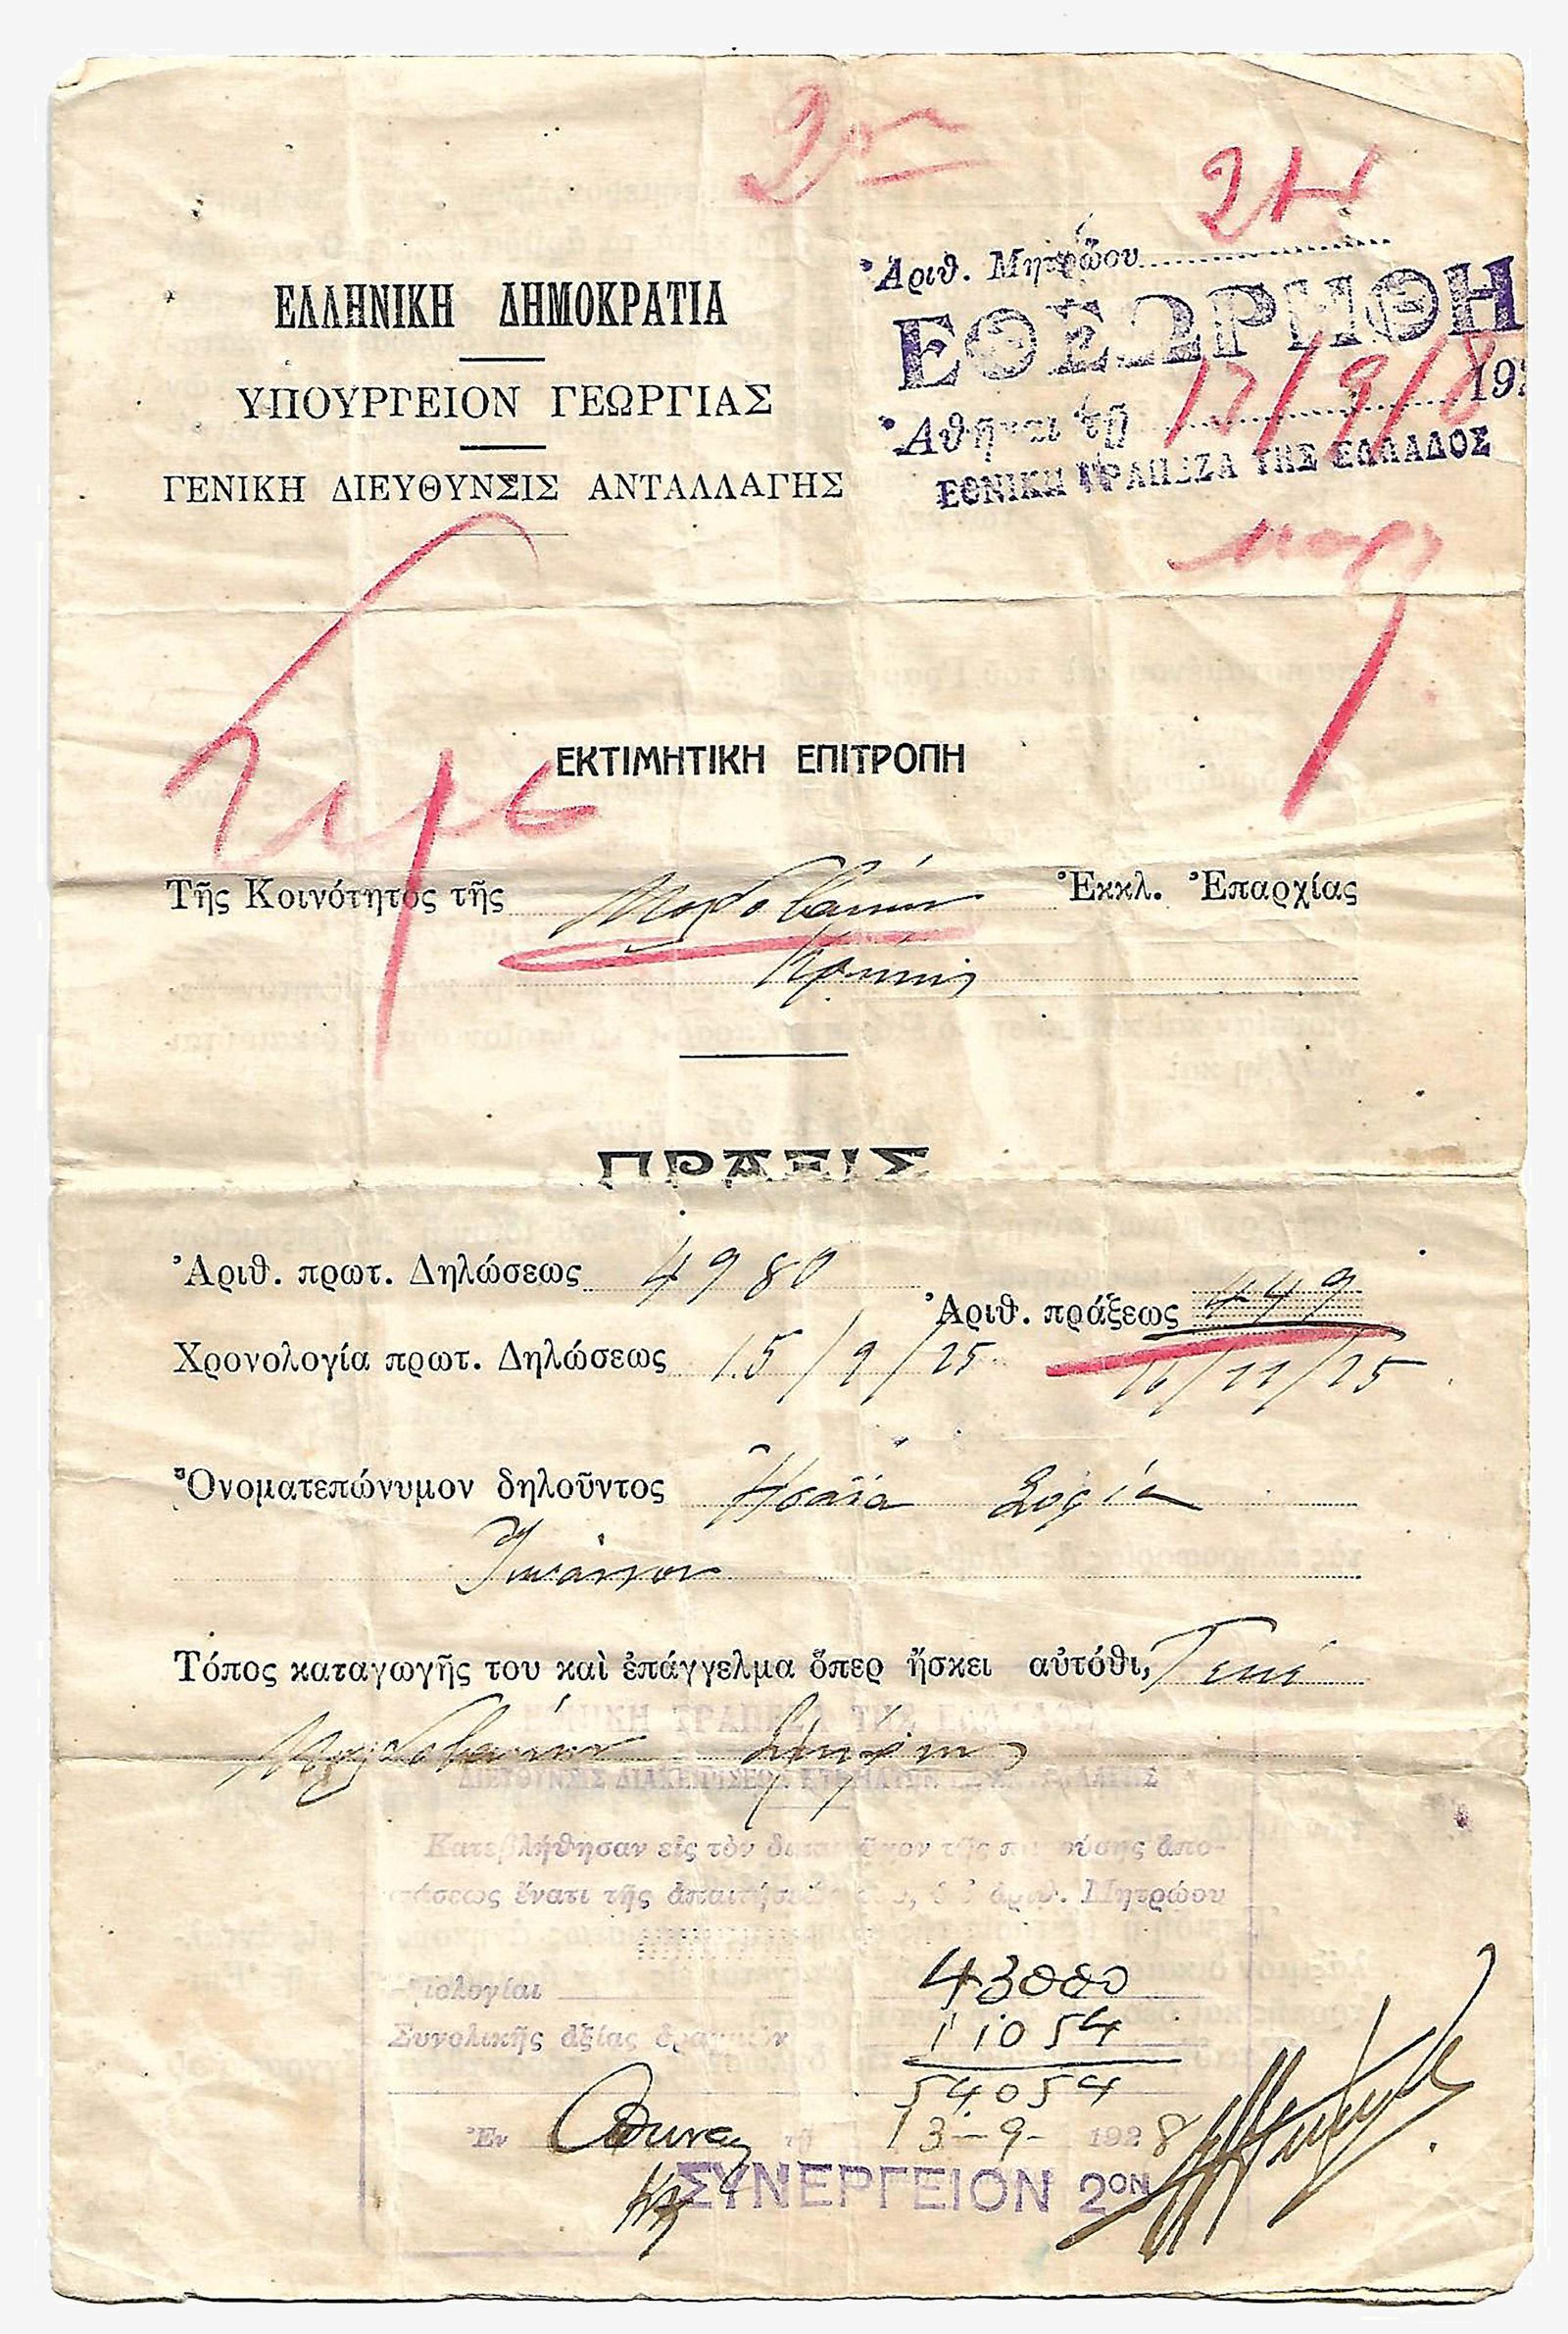 2
Ἀριθ. Μητρῴου
ΕΘΕΩΡΗΘΗ
Ἀθῆναι τῇ 13/9/8 192
ΕΘΝΙΚΗ ΤΡΑΠΕΖΑ ΤΗΣ ΕΛΛΑΔΟΣ
ΕΛΛΗΝΙΚΗ ΔΗΜΟΚΡΑΤΙΑ
ΥΠΟΥΡΓΕΙΟΝ ΓΕΩΡΓΙΑΣ
ΓΕΝΙΚΗ ΔΙΕΥΘΥΝΣΙΣ ΑΝΤΑΛΛΑΓΗΣ
ΕΚΤΙΜΗΤΙΚΗ ΕΠΙΤΡΟΠΗ
Τῆς Κοινότητος τῆς Μολδοβανών Ἐκκλ. Ἐπαρχίας
Κρήνης
ΠΡΑΞΙΣ
Ἀριθ. πρωτ. Δηλώσεως 4980
Ἀριθ. πράξεως 449
Χρονολογία πρωτ. Δηλώσεως 15/9/25 16/11/25
Ὀνοματεπώνυμον δηλοῦντος Ἡσαΐα Σοφία
Ἰωάννου
Τόπος καταγωγῆς του καὶ ἐπάγγελμα ὅπερ ἤσκει αὐτόθι,
Μολδοβανών Σμύρνης
ΕΘΝΙΚΗ ΤΡΑΠΕΖΑ ΤΗΣ ΕΛΛΑΔΟΣ
ΔΙΕΥΘΥΝΣΙΣ ΔΙΑΧΕΙΡΙΣΕΩΣ ΚΤΗΜΑΤΩΝ
Κατεβλήθησαν εἰς τὸν δικαιοῦχον τῆς παρούσης ἀπο-
φάσεως ἔναντι τῆς ἀπαιτήσεώς του, ὑπ' ἀριθ. Μητρώου
Ὁμολογίαι 43000
Συνολικῆς ἀξίας δραχμῶν 11054
54054
Ἐν Αθήναις τῇ 13-9- 1928
ΣΥΝΕΡΓΕΙΟΝ 2ΟΝ